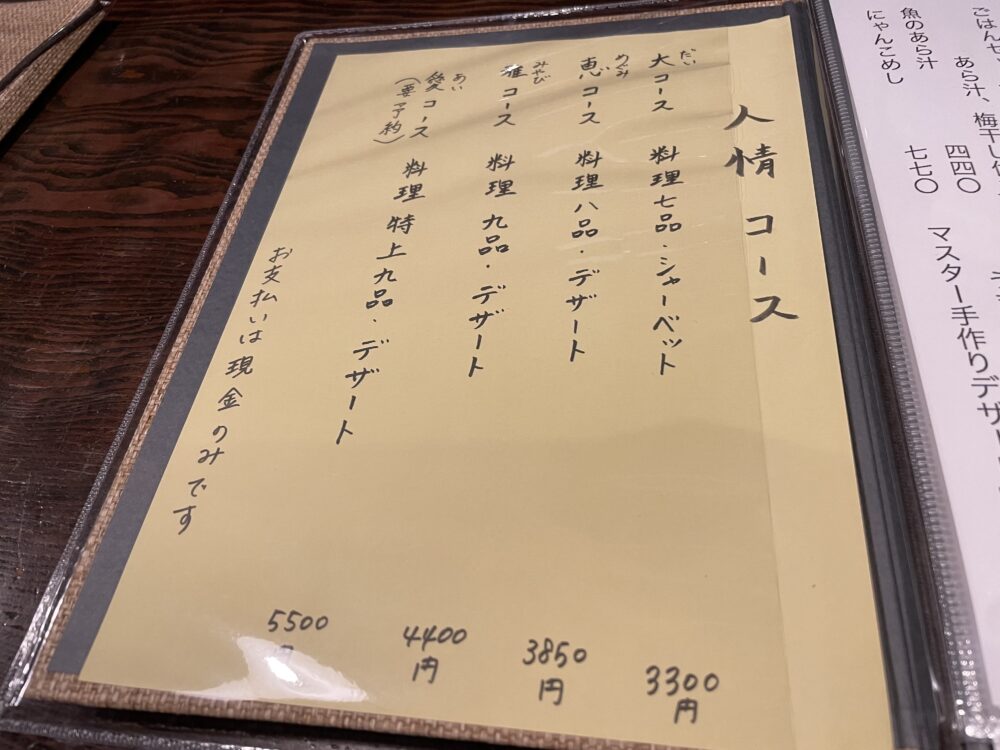 人情コース
だい
大コース 料理七品・シャーベット 3300円
めぐみ
恵コース 料理八品・デザート 3850円
みやび
雅コース 料理九品・デザート 4400円
あい
愛コース 料理特上九品・デザート 5500円
(要予約)
お支払いは現金のみです
あら汁、梅干し
魚のあら汁 四四〇
にゃんこめし 七七〇
マスター手作りデザ